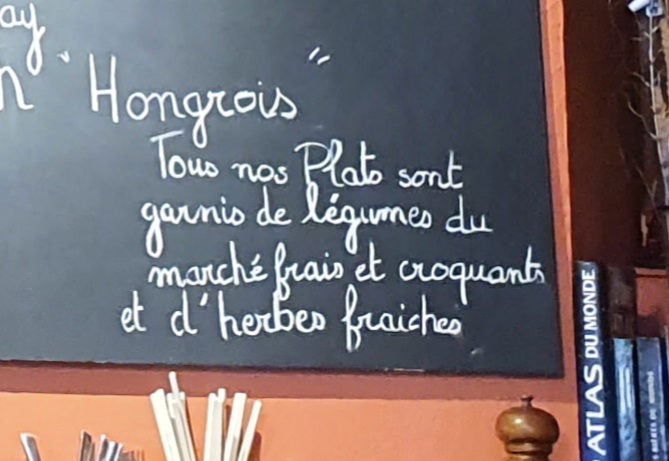 ay
n "Hongrois"
Tous nos Plats sont
garnis de légumes du
marché frais et croquants
et d'herbes fraiches
ATLAS DU MONDE